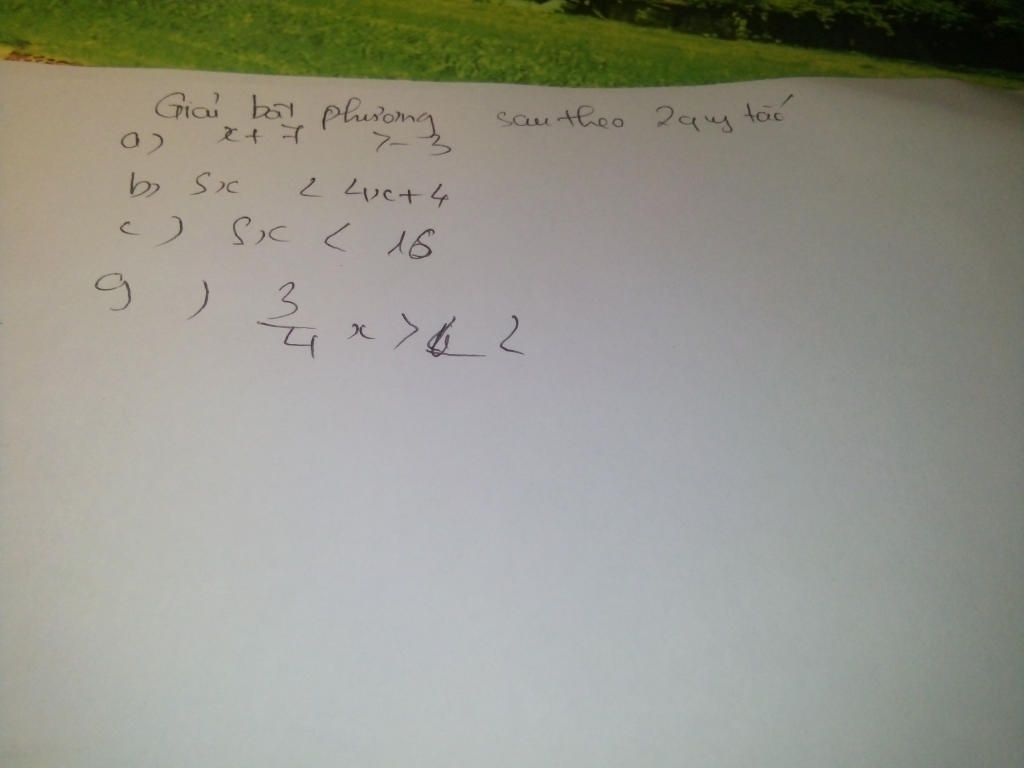 Giải bất phương sau theo 2 quy tắc
a) x + 7 > - 3
b) 5x < 4x + 4
c) 5x < 16
g) 3/4 x > 2